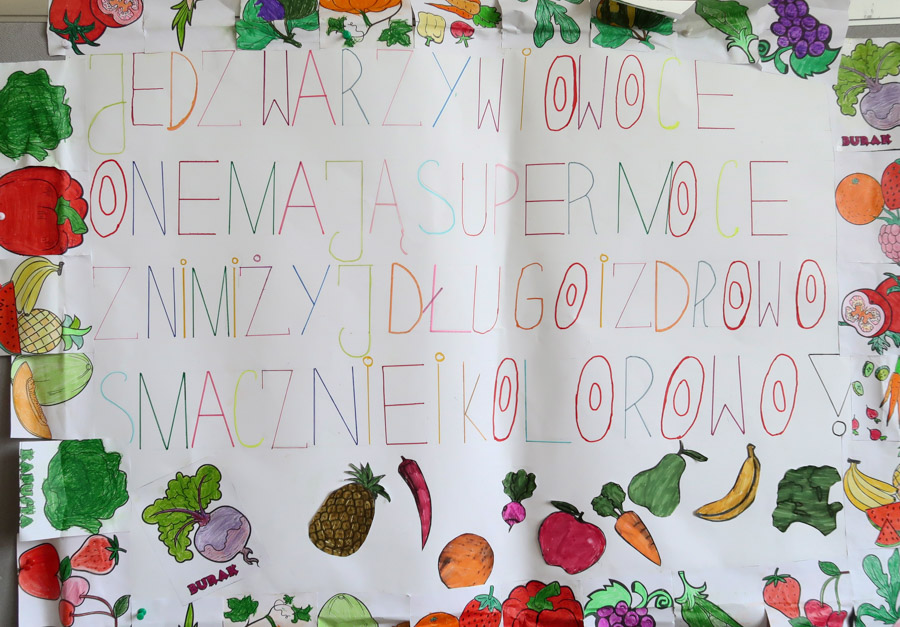 JEDZ WARZYWI OWOCE
ONE MAJĄ SUPER MOCE
Z NIMI ŻYJ DŁUGO I ZDROWO
SMACZNIE I KOLOROWO!
BURAK
KAPUSTA
BURAK